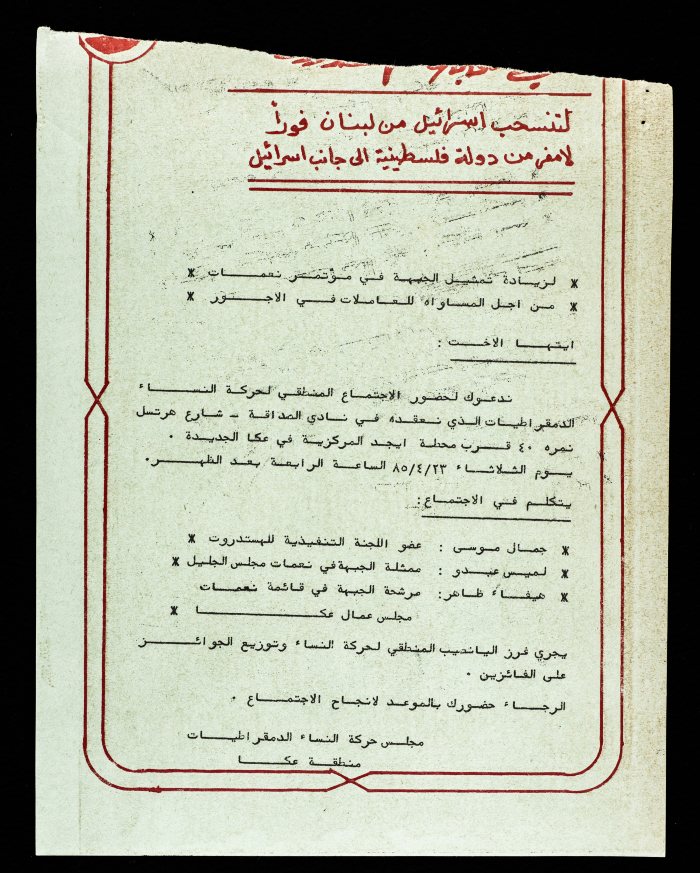 لتنسحب اسرائيل من لبنان فوراً
لامفر من دولة فلسطينية الى جانب اسرائيل
* لزيادة تمثيل الجبهة في مؤتمر نعمات *
* من اجل المساواه للعاملات في الاجور *
ايتها الاخت :
ندعوك لحضور الاجتماع المنطقي لحركة النساء
الدمقراطيات الذي نعقده في نادي الصداقة - شارع هرتسل
نمره ٤٠ قرب محطة ايجد المركزية في عكا الجديدة .
يوم الثلاثاء ٨٥/٤/٢٣ الساعة الرابعة بعد الظهر.
يتكلم في الاجتماع:
* جمال موسى : عضو اللجنة التنفيذية للهستدروت *
* لميس عبدو : ممثلة الجبهة في نعمات مجلس الجليل *
* هيفاء ظاهر: مرشحة الجبهة في قائمة نعمات
مجلس عمال عكا *
يجري فرز اليانصيب المنطقي لحركة النساء وتوزيع الجوائز
على الفائزين .
الرجاء حضورك بالموعد لانجاح الاجتماع .
مجلس حركة النساء الدمقراطيات
منطقة عكا